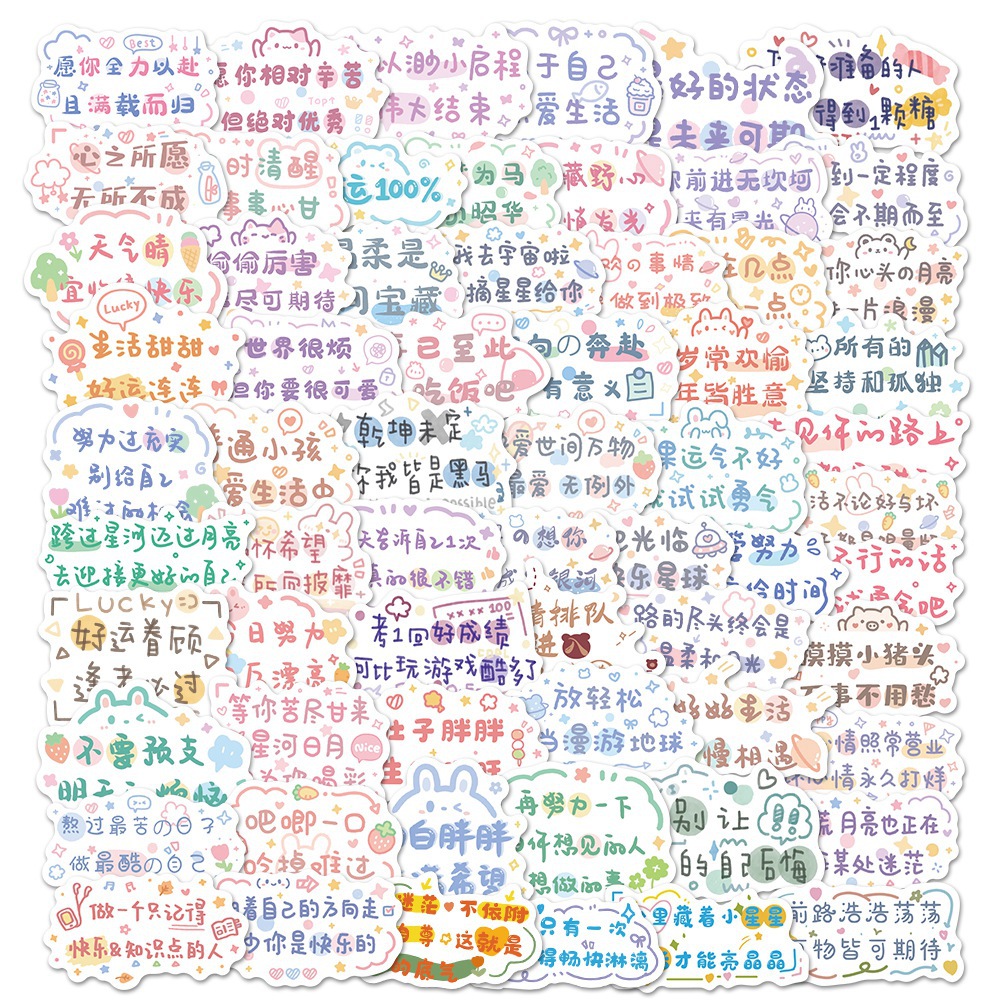 Best
愿你全力以赴
且满载而归
你相对辛苦
Top1
但绝对优秀
以渺小启程
伟大结束
于自己
爱生活
好的状态
未来可期
准备的人
得到1颗糖
心之所愿
无所不成
时清醒
事事心甘
运100%
为马
韶华
藏野心
发光
你前进无坎坷
来有星光
到一定程度
会不期而至
天气晴
宜快乐
偷偷厉害
尽可期待
柔是
宝藏
我去宇宙啦
摘星星给你
の事情
做到极致
几点
一点
你心头の月亮
片浪漫
Lucky
生活甜甜
好运连连
世界很烦
但你要很可爱
己至此
吃饭吧
向の奔赴
有意义
岁常欢愉
年皆胜意
所有的
坚持和孤独
努力过充实
别给自己
通小孩
爱生活中
乾坤未定
你我皆是黑马
possible
爱世间万物
最爱 无例外
运气不好
试试勇气
见你的路上
活不论好与坏
跨过星河迈过月亮
去迎接更好的自己
怀希望
所向披靡
夫告诉自己1次
真的很不错
の想你
银河
光临
乐星球
努力
时间
不行的话
勇气吧
LUCKY
好运眷顾
逢考必过
日努力
漂亮
xx xx 100
考1回好成绩
可比玩游戏酷多了
请排队
进
路的尽头终会是
温柔和光
摸摸小猪头
事不用愁
不要预支
明天烦恼
等你苦尽甘来
星河日月
Nice
肚子胖胖
放轻松
当漫游地球
生活
慢相遇
情照常营业
情永久打烊
熬过最苦の日子
做最酷の自己
吧唧一口
吃掉难过
白胖胖
希望
再努力一下
想见的人
想做的事
别让
的自己后悔
月亮也正在
某处迷茫
做一个只记得
快乐&知识点的人
着自己的方向走
你是快乐的
迷茫 不依附
自尊 这就是
的底气
只有一次
得畅快淋漓
里藏着小星星
才能亮晶晶
前路浩浩荡荡
万物皆可期待